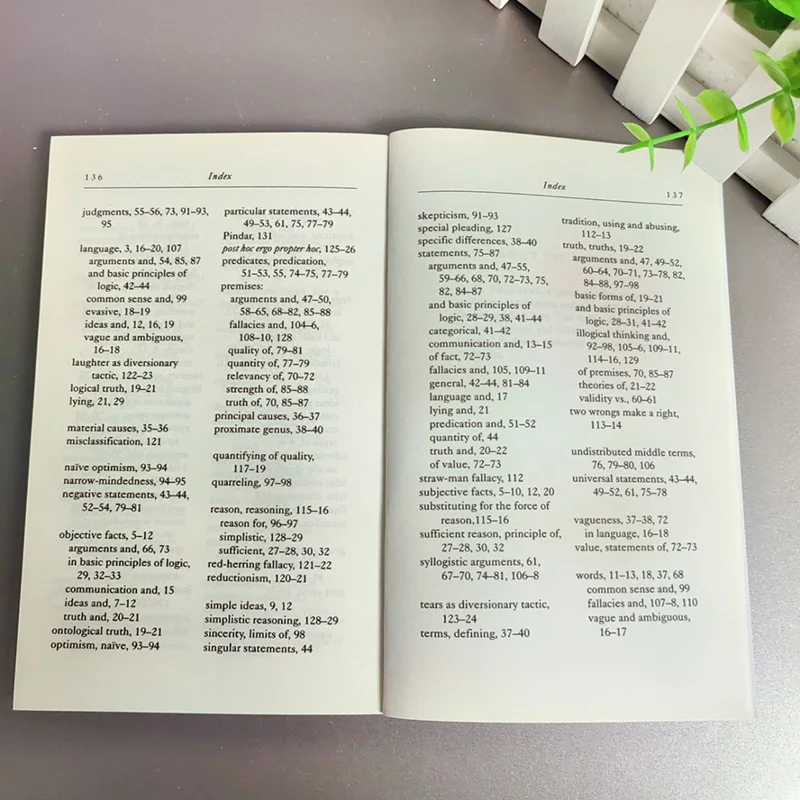 136
Index
judgments, 55–56, 73, 91–93,
95
language, 3, 16–20, 107
arguments and, 54, 85, 87
and basic principles of
logic, 42–44
common sense and, 99
evasive, 18–19
ideas and, 12, 16, 19
vague and ambiguous,
16–18
laughter as diversionary
tactic, 122–23
logical truth, 19–21
lying, 21, 29
material causes, 35–36
misclassification, 121
naïve optimism, 93–94
narrow-mindedness, 94–95
negative statements, 43–44,
52–54, 79–81
objective facts, 5–12
arguments and, 66, 73
in basic principles of logic,
29, 32–33
communication and, 15
ideas and, 7–12
truth and, 20–21
ontological truth, 19–21
optimism, naïve, 93–94
particular statements, 43–44,
49–53, 61, 75, 77–79
Pindar, 131
post hoc ergo propter hoc, 125–26
predicates, predication,
51–53, 55, 74–75, 77–79
premises:
arguments and, 47–50,
58–65, 68–82, 85–88
fallacies and, 104–6,
108–10, 128
quality of, 79–81
quantity of, 77–79
relevancy of, 70–72
strength of, 85–88
truth of, 70, 85–87
principal causes, 36–37
proximate genus, 38–40
quantifying of quality,
117–19
quarreling, 97–98
reason, reasoning, 115–16
reason for, 96–97
simplistic, 128–29
sufficient, 27–28, 30, 32
red-herring fallacy, 121–22
reductionism, 120–21
simple ideas, 9, 12
simplistic reasoning, 128–29
sincerity, limits of, 98
singular statements, 44
Index
137
skepticism, 91–93
special pleading, 127
specific differences, 38–40
statements, 75–87
arguments and, 47–55,
59–66, 68, 70, 72–73, 75,
82, 84–87
and basic principles of
logic, 28–29, 38, 41–44
categorical, 41–42
communication and, 13–15
of fact, 72–73
fallacies and, 105, 109–11
general, 42–44, 81–84
language and, 17
lying and, 21
predication and, 51–52
quantity of, 44
truth and, 20–22
of value, 72–73
straw-man fallacy, 112
subjective facts, 5–10, 12, 20
substituting for the force of
reason,115–16
sufficient reason, principle of,
27–28, 30, 32
syllogistic arguments, 61,
67–70, 74–81, 106–8
tears as diversionary tactic,
123–24
terms, defining, 37–40
tradition, using and abusing,
112–13
truth, truths, 19–22
arguments and, 47, 49–52,
60–64, 70–71, 73–78, 82,
84–88, 97–98
basic forms of, 19–21
and basic principles of
logic, 28–31, 41–42
illogical thinking and,
92–98, 105–6, 109–11,
114–16, 129
of premises, 70, 85–87
theories of, 21–22
validity vs., 60–61
two wrongs make a right,
113–14
undistributed middle terms,
76, 79–80, 106
universal statements, 43–44,
49–52, 61, 75–78
vagueness, 37–38, 72
in language, 16–18
value, statements of, 72–73
words, 11–13, 18, 37, 68
common sense and, 99
fallacies and, 107–8, 110
vague and ambiguous,
16–17